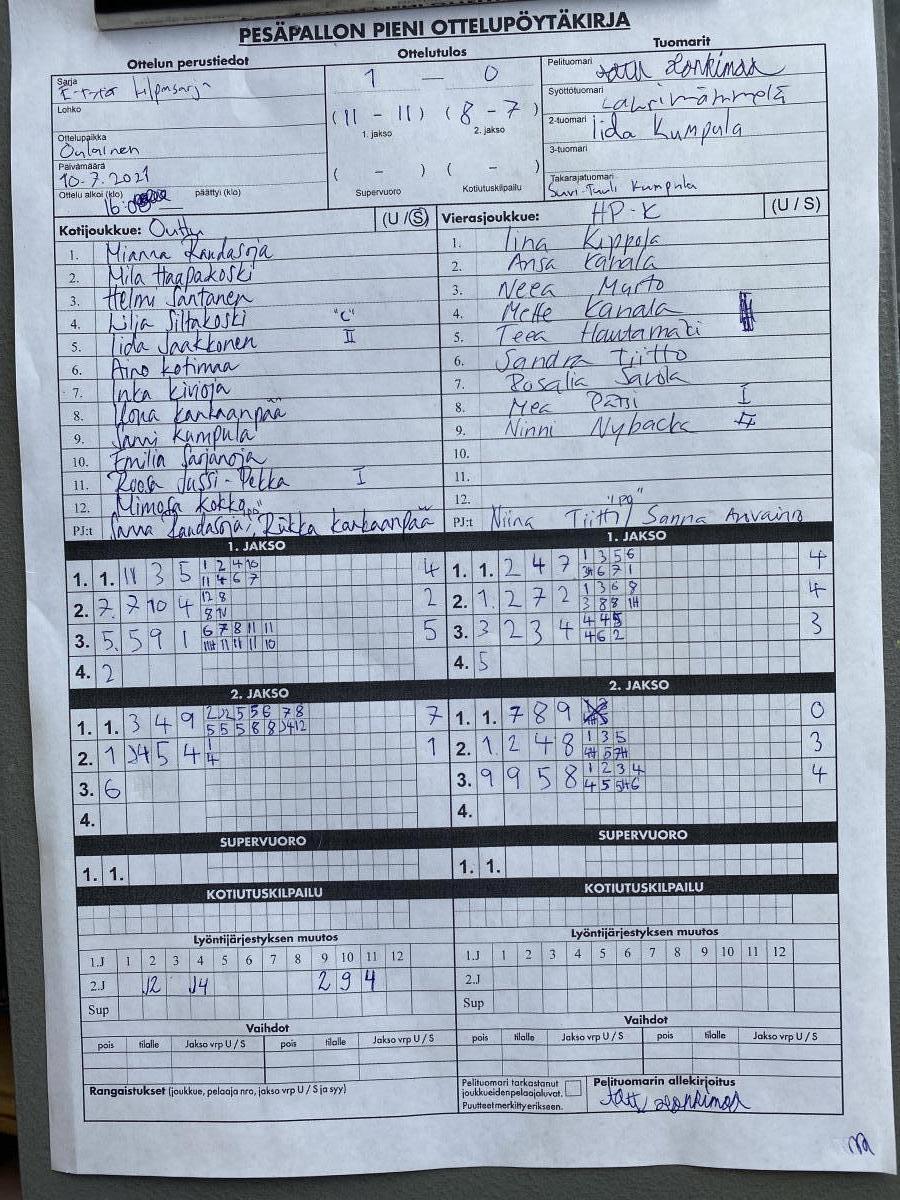 PESÄPALLON PIENI OTTELUPÖYTÄKIRJA
Ottelun perustiedot
Ottelutulos
Tuomarit
Sarja
Lohko
Ottelupaikka
Oulainen
Päivämäärä
10.7.2021
Ottelu alkoi (klo) 16:0 päättyi (klo)
1 — 0
(11 - 11) (8 - 7)
1. jakso 2. jakso
( - ) ( - )
Supervuoro Kotiutuskilpailu
Pelituomari
Syöttötuomari
2-tuomari Iida Kumpula
3-tuomari
Takarajatuomari
Suvi-Tuuli Kumpula
Kotijoukkue: (U / S)
1. Mianna Randasoja
2. Mila Haapakoski
3. Helmi Santanen
4. Lilja Siltakoski "C"
5. Iida Jaakkonen II
6. Aino Kotimaa
7. Inka Kivioja
8. Ilona Kankaanpää
9. Sanni Kumpula
10. Emilia Sarjanoja
11. Roosa Jussi-Pekka I
12. Mimosa Kokko
PJ:t Sanna Randasoja, Riikka Kankaanpää
Vierasjoukkue: HP-K (U / S)
1. Iina Kippola
2. Ansa Kanala
3. Neea Murto
4. Mette Kanala
5. Teea Hautamäki
6. Sandra Tiitto
7. Rosalia Savola
8. Mea Passi I
9. Ninni Nyback
10.
11.
12.
PJ:t Niina Tiitto "1PJ" Sanna Anvainio
1. JAKSO
1. 1. 11 3 5 1 2 4 10 4
11 4 6 7
2. 7. 7 10 4 12 8 2
3. 5. 5 9 1 6 7 8 11 11 5
4. 2
1. JAKSO
1. 1. 2 4 7 1 3 5 6 4
2. 1. 2 7 2 1 3 6 8 4
3. 3 2 3 4 4 4 5 3
4 6 2
4. 5
2. JAKSO
1. 1. 3 4 9 7
2. 1 J4 5 4 1 1
4
3. 6
4.
2. JAKSO
1. 1. 7 8 9 0
2. 1. 2 4 8 1 3 5 3
3. 9 9 5 8 1 2 3 4 4
4.
SUPERVUORO
1. 1.
SUPERVUORO
1. 1.
KOTIUTUSKILPAILU
KOTIUTUSKILPAILU
Lyöntijärjestyksen muutos
1.J 1 2 3 4 5 6 7 8 9 10 11 12
2.J J2 J4 2 9 4
Sup
Lyöntijärjestyksen muutos
1.J 1 2 3 4 5 6 7 8 9 10 11 12
2.J
Sup
Vaihdot
pois tilalle Jakso vrp U / S pois tilalle Jakso vrp U / S
Vaihdot
pois tilalle Jakso vrp U / S pois tilalle Jakso vrp U / S
Rangaistukset (joukkue, pelaaja nro, jakso vrp U / S ja syy)
Pelituomari tarkastanut
joukkueiden pelaajaluvat.
Puutteet merkitty erikseen.
Pelituomarin allekirjoitus